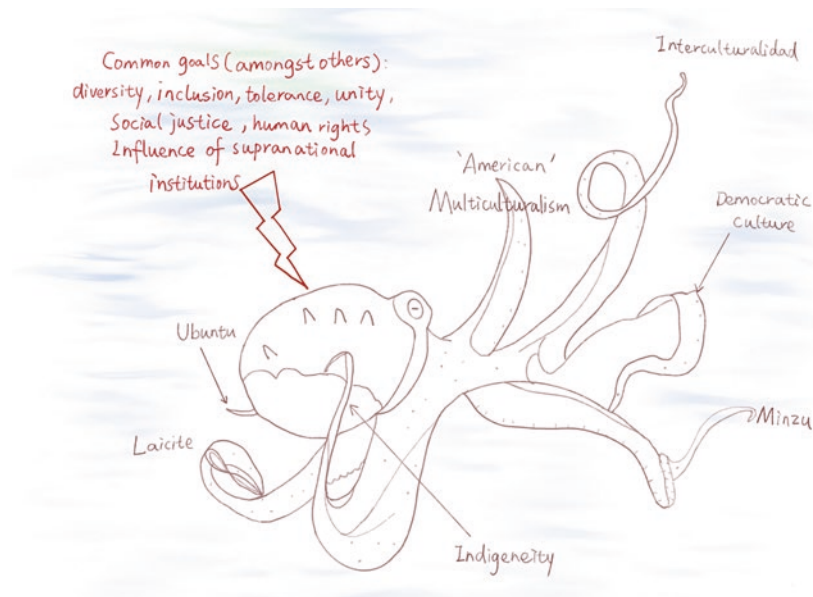 Common goals (amongst others):
diversity, inclusion, tolerance, unity,
Social justice, human rights
Influence of supranational
institutions
Interculturalidad
'American'
Multiculturalism
Democratic
culture
Ubuntu
Laicite
Minzu
Indigeneity